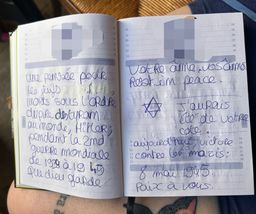 Une pensée pour
les juifs
morts sous L'ordre
du pire
au monde, Hitler,
pendant la 2nd
guerre mondiale
de à 1945
que dieu garde
Votre âme, vos âmes
Rest in peace.
J'aurais
été de votre
coté.
aujourd'hui victoire
contre les nazis:
8 mai 1945.
Paix à vous.